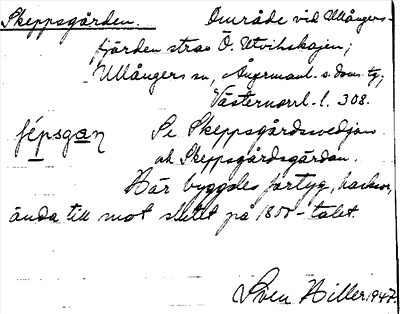 Skeppsgården. Område vid Ullångers-
fjärden strax Ö. Utvikskajen;
Ullångers sn, Ångermanl. s. doms. tg;
Västernorrl. l. 308.
fépsgan Se Skeppsgårdsvedjan
och Skeppsgårdsgärdan.
Här byggdes fartyg,
ända till mot slutet på 1800-talet.
Sven Hiller 1947.